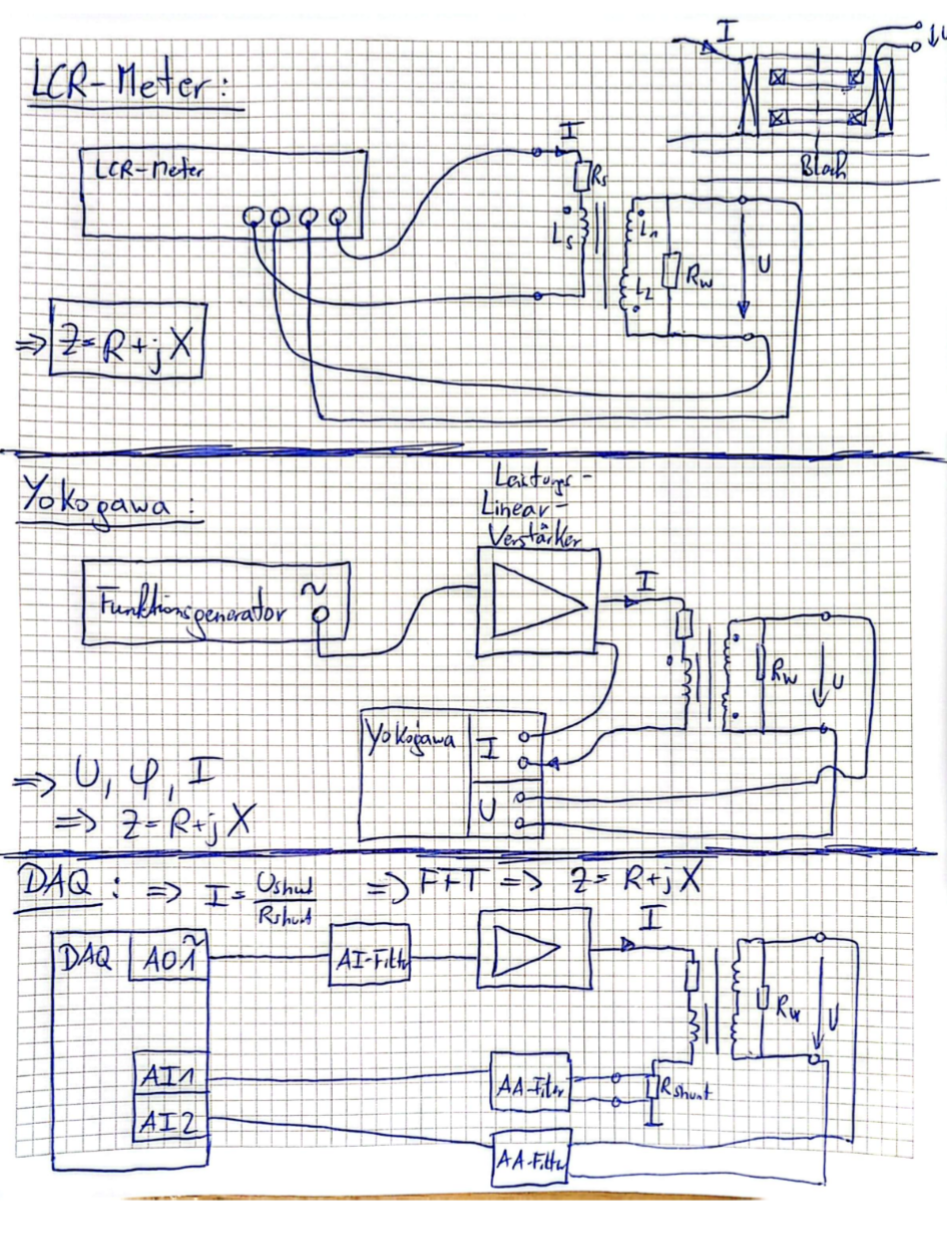 LCR-Meter:
I
U
Blech
LCR-Meter
I
Rs
Ls
L1
L2
Rw
U
⇒ Z=R+jX
Yokogawa:
Leistungs-
Linear-
Verstärker
Funktionsgenerator ~
I
Rw
U
Yokogawa
I
U
⇒ U, φ, I
⇒ Z=R+jX
DAQ: ⇒ I = Ushunt/Rshunt ⇒ FFT ⇒ Z=R+jX
DAQ
AO1 ~
AI-Filter
I
Rw
U
AI1
AA-Filter
Rshunt
AI2
AA-Filter